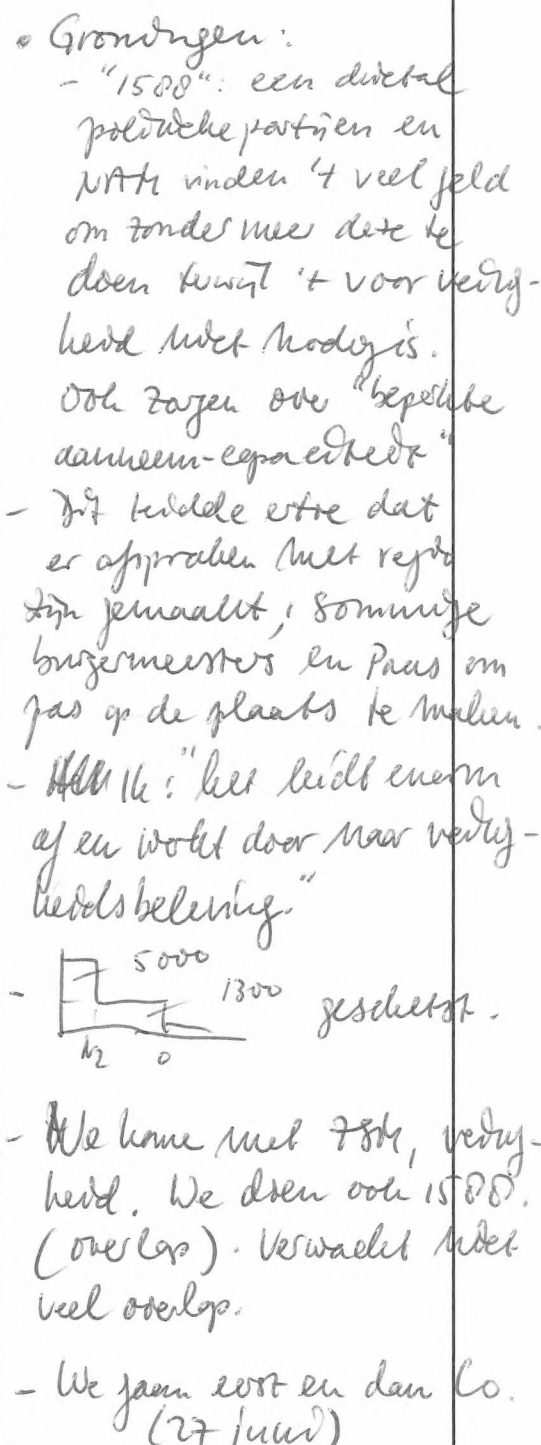 • Groningen:
- "1588": een drietal
politieke partijen en
NAM vinden 't veel geld
om zonder meer deze te
doen terwijl 't voor veilig-
heid niet nodig is.
Ook zorgen over "beperkte
aanneem-capaciteit"
- Dit leidde ertoe dat
er afspraken met regio
zijn gemaakt, sommige
burgermeesters en Paas om
pas op de plaats te maken.
- Ik: "het leidt enorm
af en wordt door naar veilig-
heidsbeleving."
- 5000
1300 geschetst.
N2 0
- We komen met 7504, veilig-
heid. We doen ook 1588.
(overlap). Verwacht niet
veel overlap.
- We gaan eerst en dan Co.
(27 juni)